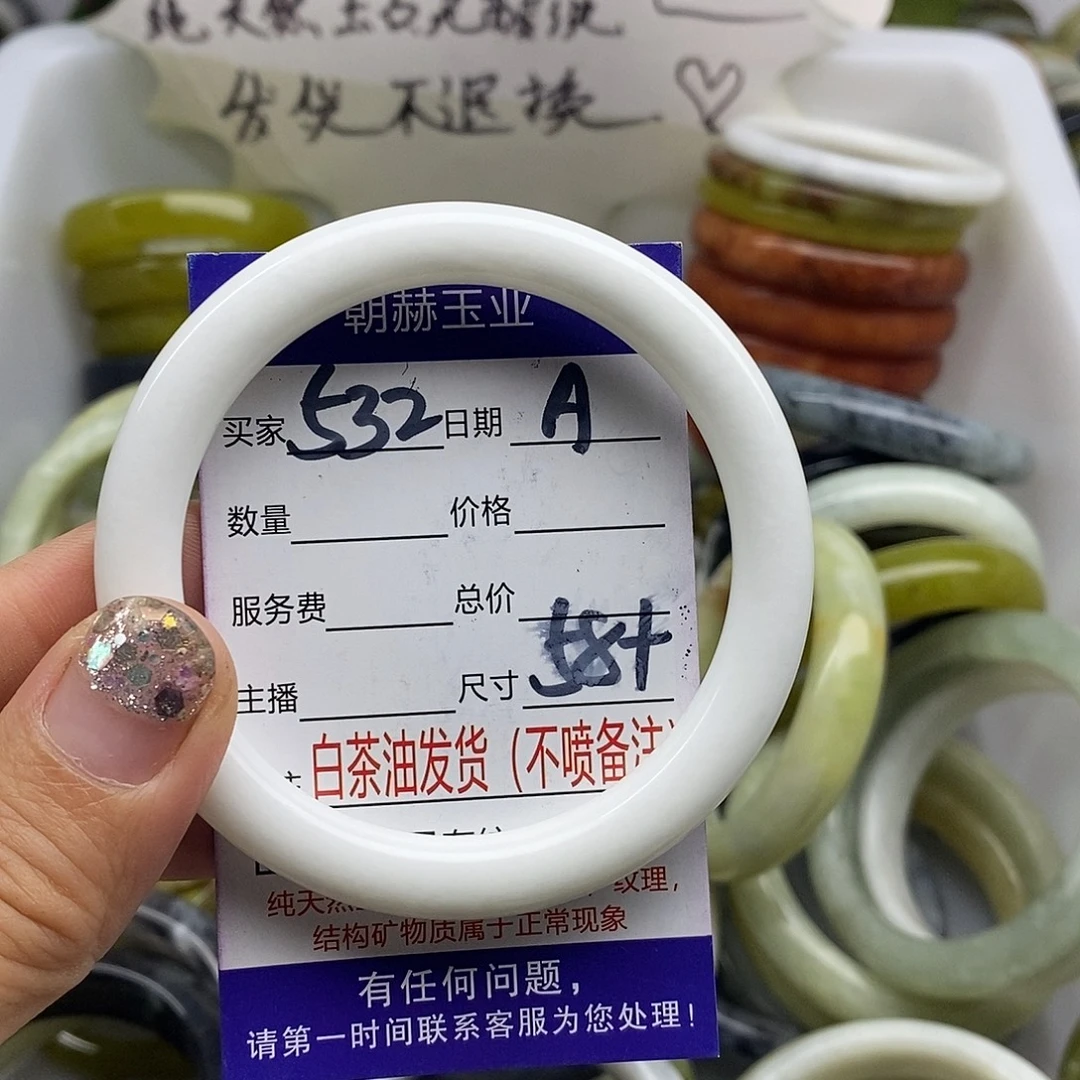 纯天然玉石无醋洗
售后不退换
朝赫玉业
买家 532 日期 A
数量 价格
服务费 总价
主播 尺寸 584
白茶油发货（不喷备注）
纯天然 纹理，
结构矿物质属于正常现象
有任何问题，
请第一时间联系客服为您处理！